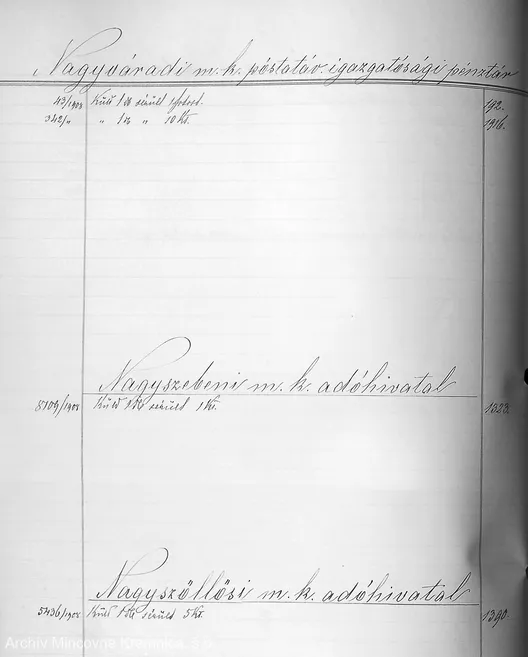 Nagyváradi m. k. póstatáv. igazgatósági pénztár
43/1908 Küld 1 db sérült 192.
342/„ „ 1 db „ 10 Kt. 1316.
Nagyszebeni m. k. adóhivatal
8109/1908 Küld 1 db sérült 1 Kt. 1323.
Nagyszőllősi m. k. adóhivatal
5436/1908 Küld 1 db sérült 5 Kt. 1390.
Archív Mincovne Kremnica, š.p.